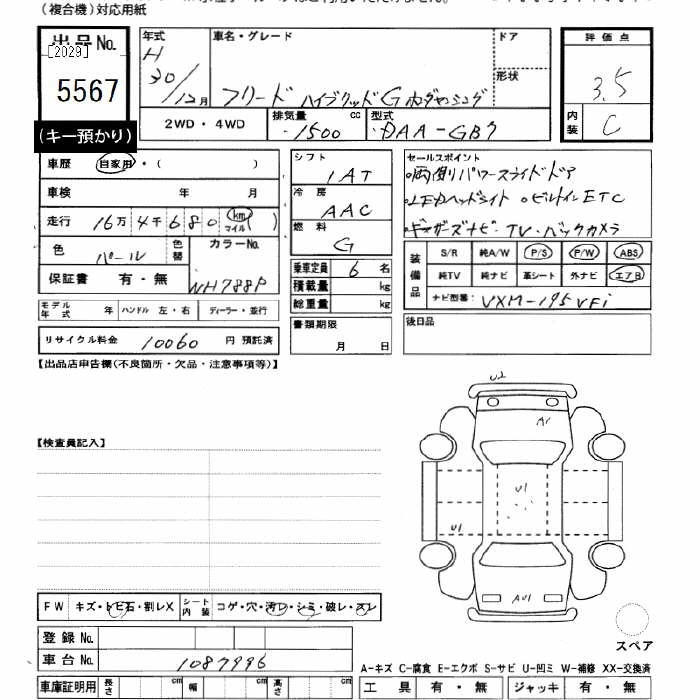 (複合機)対応用紙
出品No.
[2029]
5567
(キー預かり)
年式 車名・グレード ドア 形状
H 30/12月
フリード ハイブリッドG ホンダセンシング
2WD・4WD 排気量 1500 cc 型式 DAA-GB7
評価点 3.5
内装 C
車歴 自家用・( )
車検 年 月
走行 16万 4千 6 8 0 km マイル ( )
色 パール 色替 カラーNo. NH788P
保証書 有・無
モデル年式 年 ハンドル 左・右 ディーラー・並行
リサイクル料金 10060 円 預託済
シフト 1AT
冷房 AAC
燃料 G
乗車定員 6 名
積載量 kg
総重量 kg
書類期限 月 日
セールスポイント
・両側パワースライドドア
・LEDヘッドライト ・ビルトインETC
・ギャザーズナビ・TV・バックカメラ
装備品 S/R 純A/W P/S P/W ABS
純TV 純ナビ 革シート 外ナビ エアB
ナビ型番: VXM-195VFi
後日品
【出品店申告欄(不良箇所・欠品・注意事項等)】
【検査員記入】
U2
A1
U1
U1
AU1
スペア
FW キズ・トビ石・割レX シート内装 コゲ・穴・汚レ・シミ・破レ・スレ
登録No.
車台No. 1087996
車庫証明用 長さ cm 幅 cm 高さ cm
A-キズ C-腐食 E-エクボ S-サビ U-凹ミ W-補修 XX-交換済
工具 有・無 ジャッキ 有・無